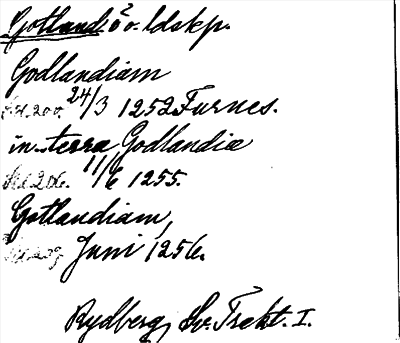 Gotland. ö o. ldskp.
Godlandiam
24/3 1252 Furnes.
in terra Godlandiæ
Sid. 206. 11/6 1255.
Gotlandiam,
Juni 1256.
Rydberg, Sv. Trakt. I.